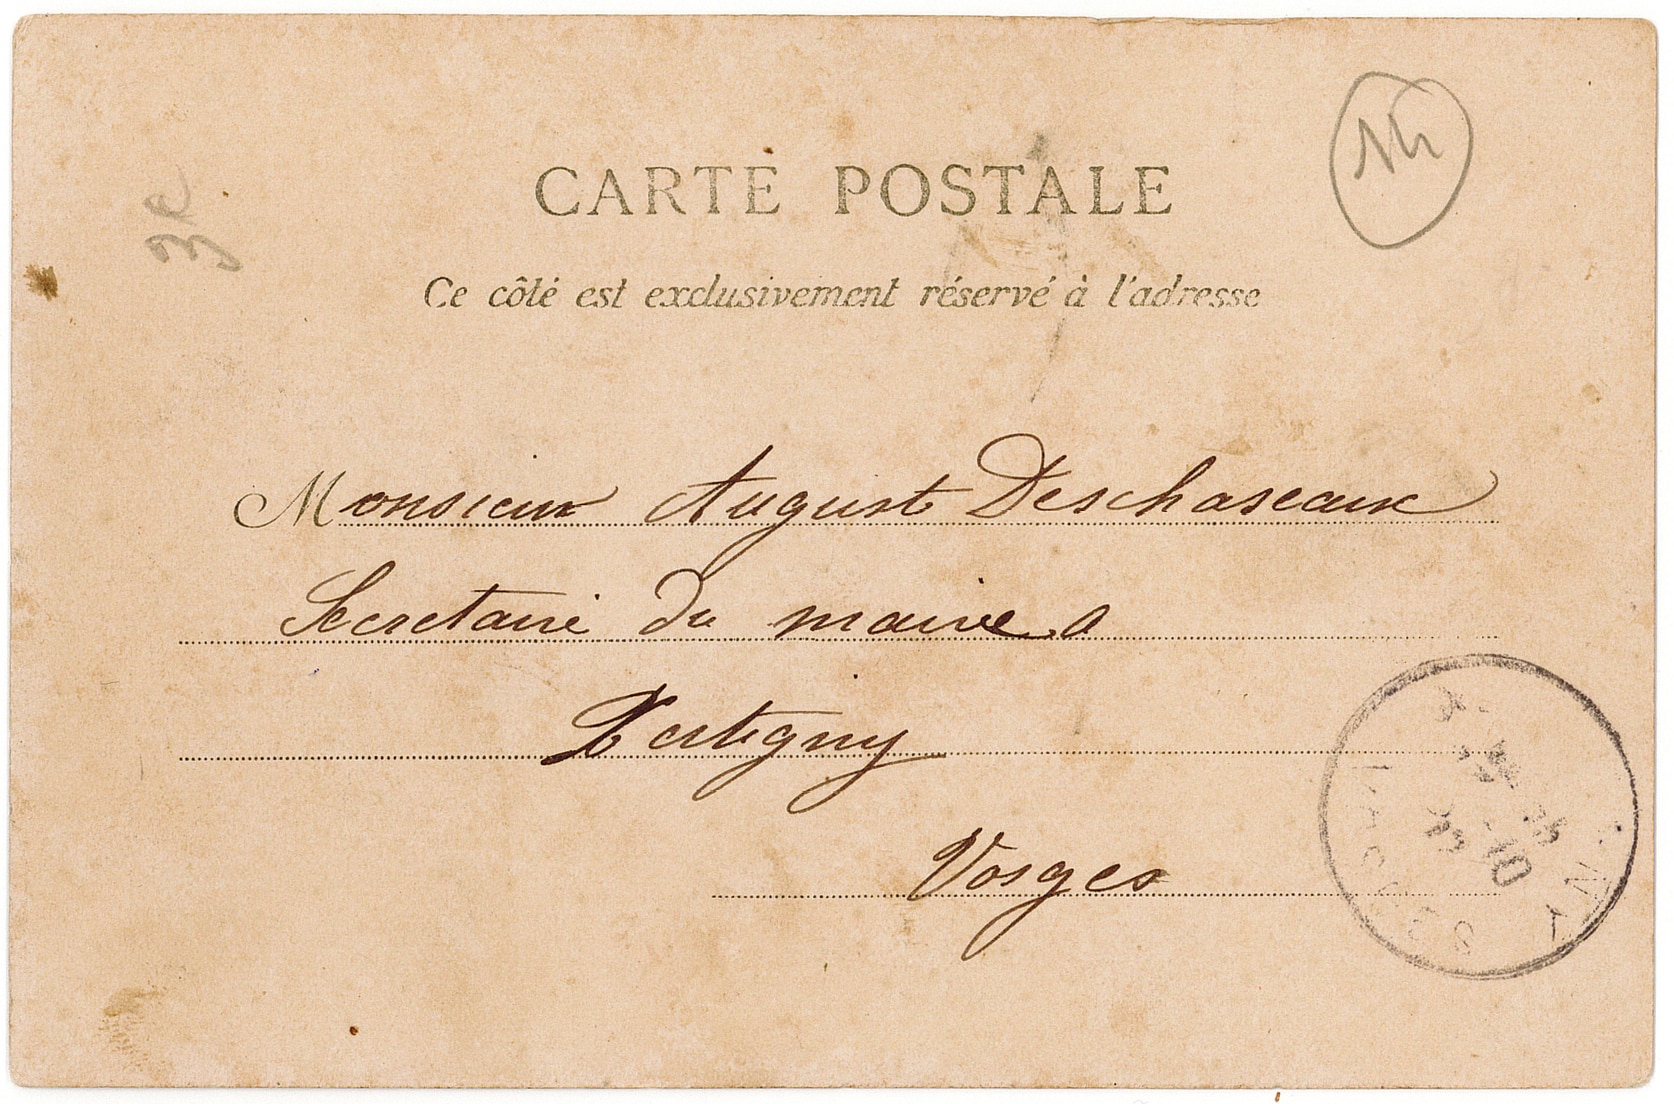 CARTE POSTALE
Ce côté est exclusivement réservé à l'adresse
Monsieur August Deschaseaux
Secretaire du maire a
Xertigny
Vosges